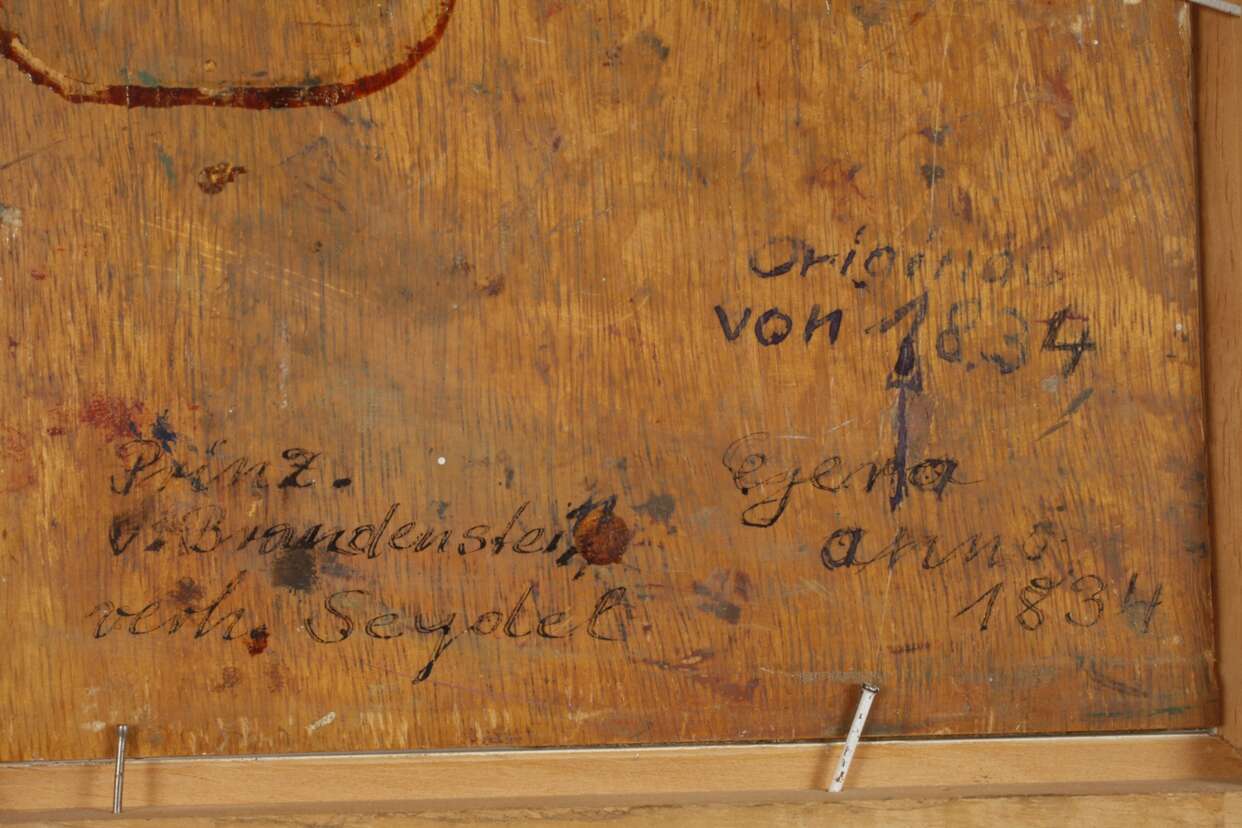 Original
von 1834
Prinz.
v. Brandenstein
verh. Seydel
Egera
anno
1834